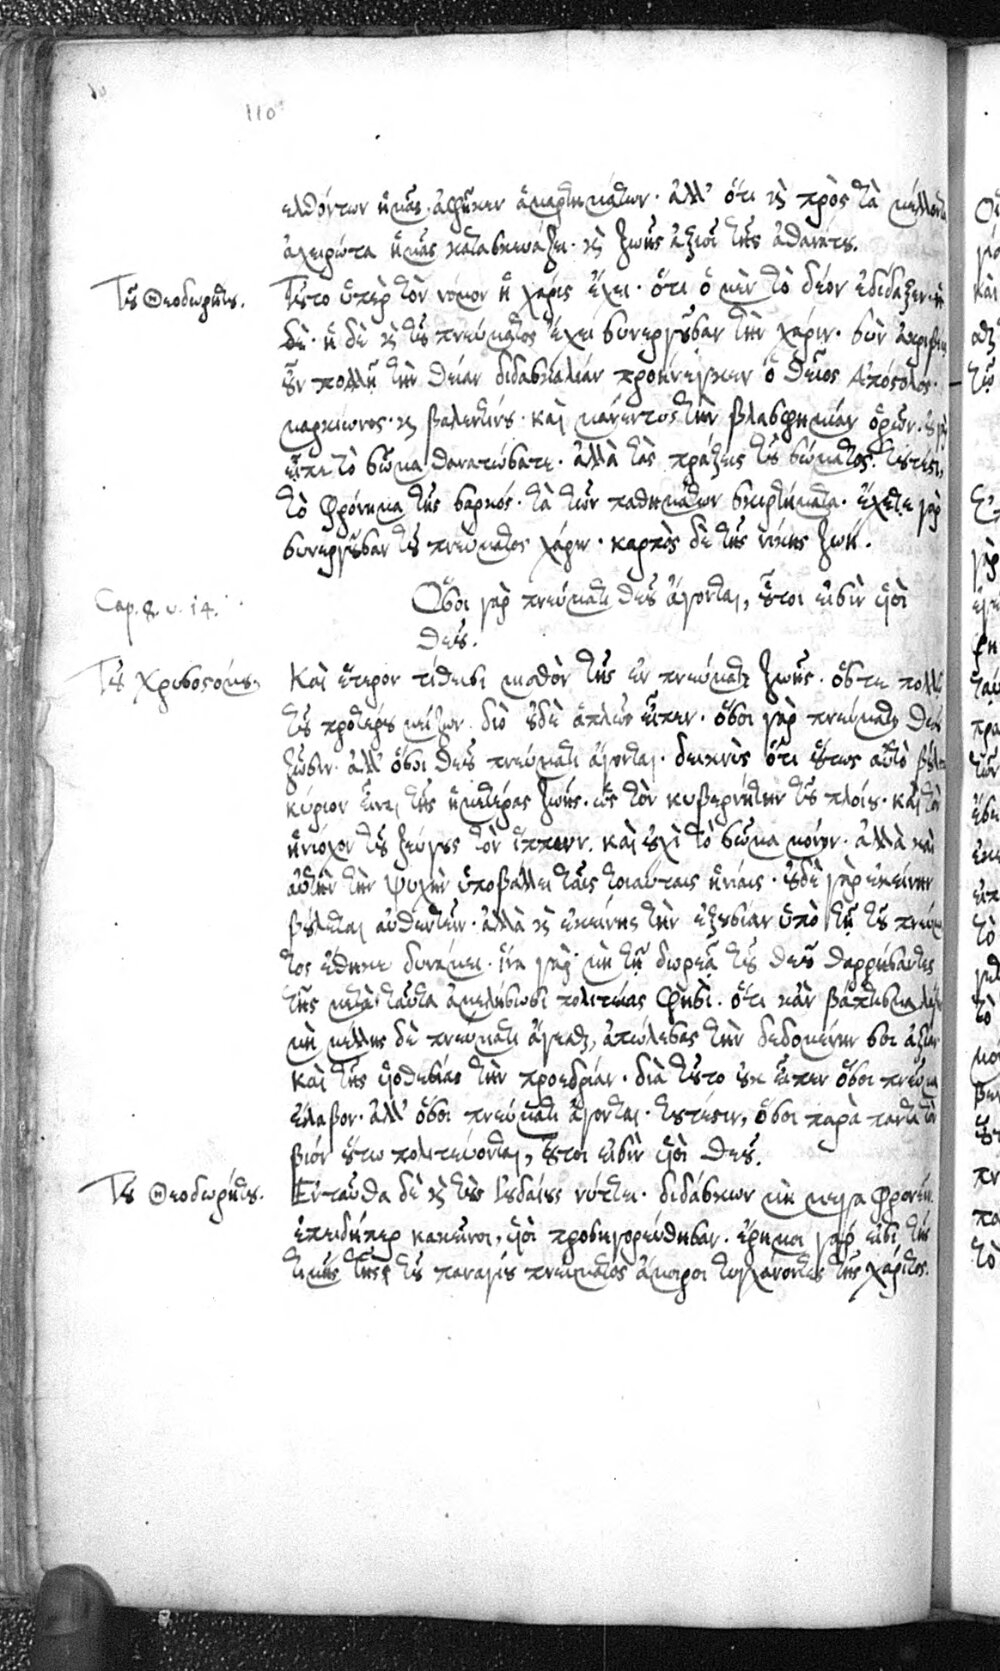 110
ελθόντων ἡμᾶς ἀφῆκεν ἁμαρτημάτων· ἀλλ' ὅτι καὶ πρὸς τὰ μέλλοντα
ἀχειρώτους ἡμᾶς κατασκευάζει· καὶ ζωῆς ἀξιοῖ τῆς ἀθανάτου.
Τοῦ Θεοδωρήτου. Τοῦτο ὑπὲρ τὸν νόμον ἡ χάρις ἔχει· ὅτι ὁ μὲν τὸ δέον ἐδίδαξεν· ἡ
δὲ· ἡ δὲ καὶ τοῦ πνεύματος ἔχει συνεργοῦσαν τὴν χάριν· σὺν ἀκριβείᾳ
πολλῇ τὴν θείαν διδασκαλίαν προσήνεγκεν ὁ θεῖος Ἀπόστολος·
μαρκίωνος· καὶ βαλεντίνου· καὶ μάνεντος τὴν βλασφημίαν ὁρῶν. οὐ γὰρ
εἶπε τὸ σῶμα θανατώσατε· ἀλλὰ τὰς πράξεις τοῦ σώματος· τουτέστι,
τὸ φρόνημα τῆς σαρκός· τὰ τῶν παθημάτων σκιρτήματα· ἔχετε γὰρ
συνεργοῦσαν τοῦ πνεύματος χάριν· καρπὸς δὲ τῆς νίκης ζωή.
Cap. 8. v. 14. Ὅσοι γὰρ πνεύματι θεοῦ ἄγονται, οὗτοι εἰσὶν υἱοὶ
θεοῦ.
Τοῦ Χρυσοστόμου. Καὶ ἕτερον τίθησι μισθὸν τῆς ἐν πνεύματι ζωῆς· ὅστε πολλῷ
τοῦ προτέρου μείζων· διὸ οὐδὲ ἁπλῶς εἶπεν· ὅσοι γὰρ πνεύματι θεοῦ
ζῶσιν· ἀλλ' ὅσοι θεοῦ πνεύματι ἄγονται· δεικνὺς ὅτι οὕτως αὐτὸ βούλεται
κύριον εἶναι τῆς ἡμετέρας ζωῆς· ὡς τὸν κυβερνήτην τοῦ πλοίου· καὶ τὸν
ἡνίοχον τοῦ ζεύγους τῶν ἵππων. καὶ οὐχὶ τὸ σῶμα μόνον· ἀλλὰ καὶ
αὐτὴν τὴν ψυχὴν ὑποβάλλει ταῖς τοιαύταις ἡνίαις· οὐδὲ γὰρ ἐκείνην
βούλεται αὐθεντεῖν· ἀλλὰ καὶ ἐκείνης τὴν ἐξουσίαν ὑπὸ τῇ τοῦ πνεύμα
τος ἔθηκε δυνάμει· ἵνα γὰρ μὴ τῇ δωρεᾷ τοῦ θεοῦ θαρρήσαντες
τῆς μετὰ ταῦτα ἀμελήσωσι πολιτείας φησί· ὅτι κἂν βάπτισμα λάβῃς
μὴ μέλλῃς δὲ πνεύματι ἄγεσθαι, ἀπώλεσας τὴν δεδομένην σοι ἀξίαν
καὶ τῆς υἱοθεσίας τὴν προεδρίαν· διὰ τοῦτο οὐκ εἶπεν ὅσοι πνεῦμα
ἔλαβον· ἀλλ' ὅσοι πνεύματι ἄγονται· τουτέστιν, ὅσοι παρὰ πάντα τὸν
βίον οὕτω πολιτεύονται, οὗτοι εἰσὶν υἱοὶ θεοῦ.
Τοῦ Θεοδωρήτου. Ἐνταῦθα δὲ καὶ τοὺς Ἰουδαίους νύττει· διδάσκων μὴ μέγα φρονεῖν
ἐπειδήπερ κακεῖνοι, υἱοὶ προσηγορεύθησαν. ἔρημοι γάρ εἰσι τῆς
τιμῆς τῆς τοῦ παναγίου πνεύματος ἄμοιροι τυγχάνοντες τῆς χάριτος.